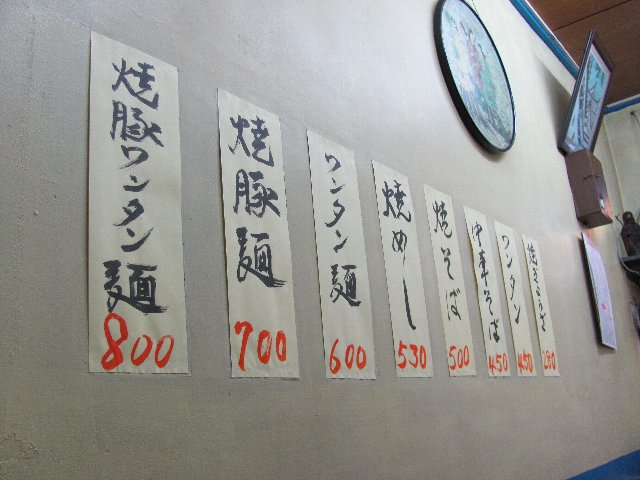 焼豚ワンタン麺
800
焼豚麺
700
ワンタン麺
600
焼めし
530
焼そば
500
中華そば
450
ワンタン
450
280